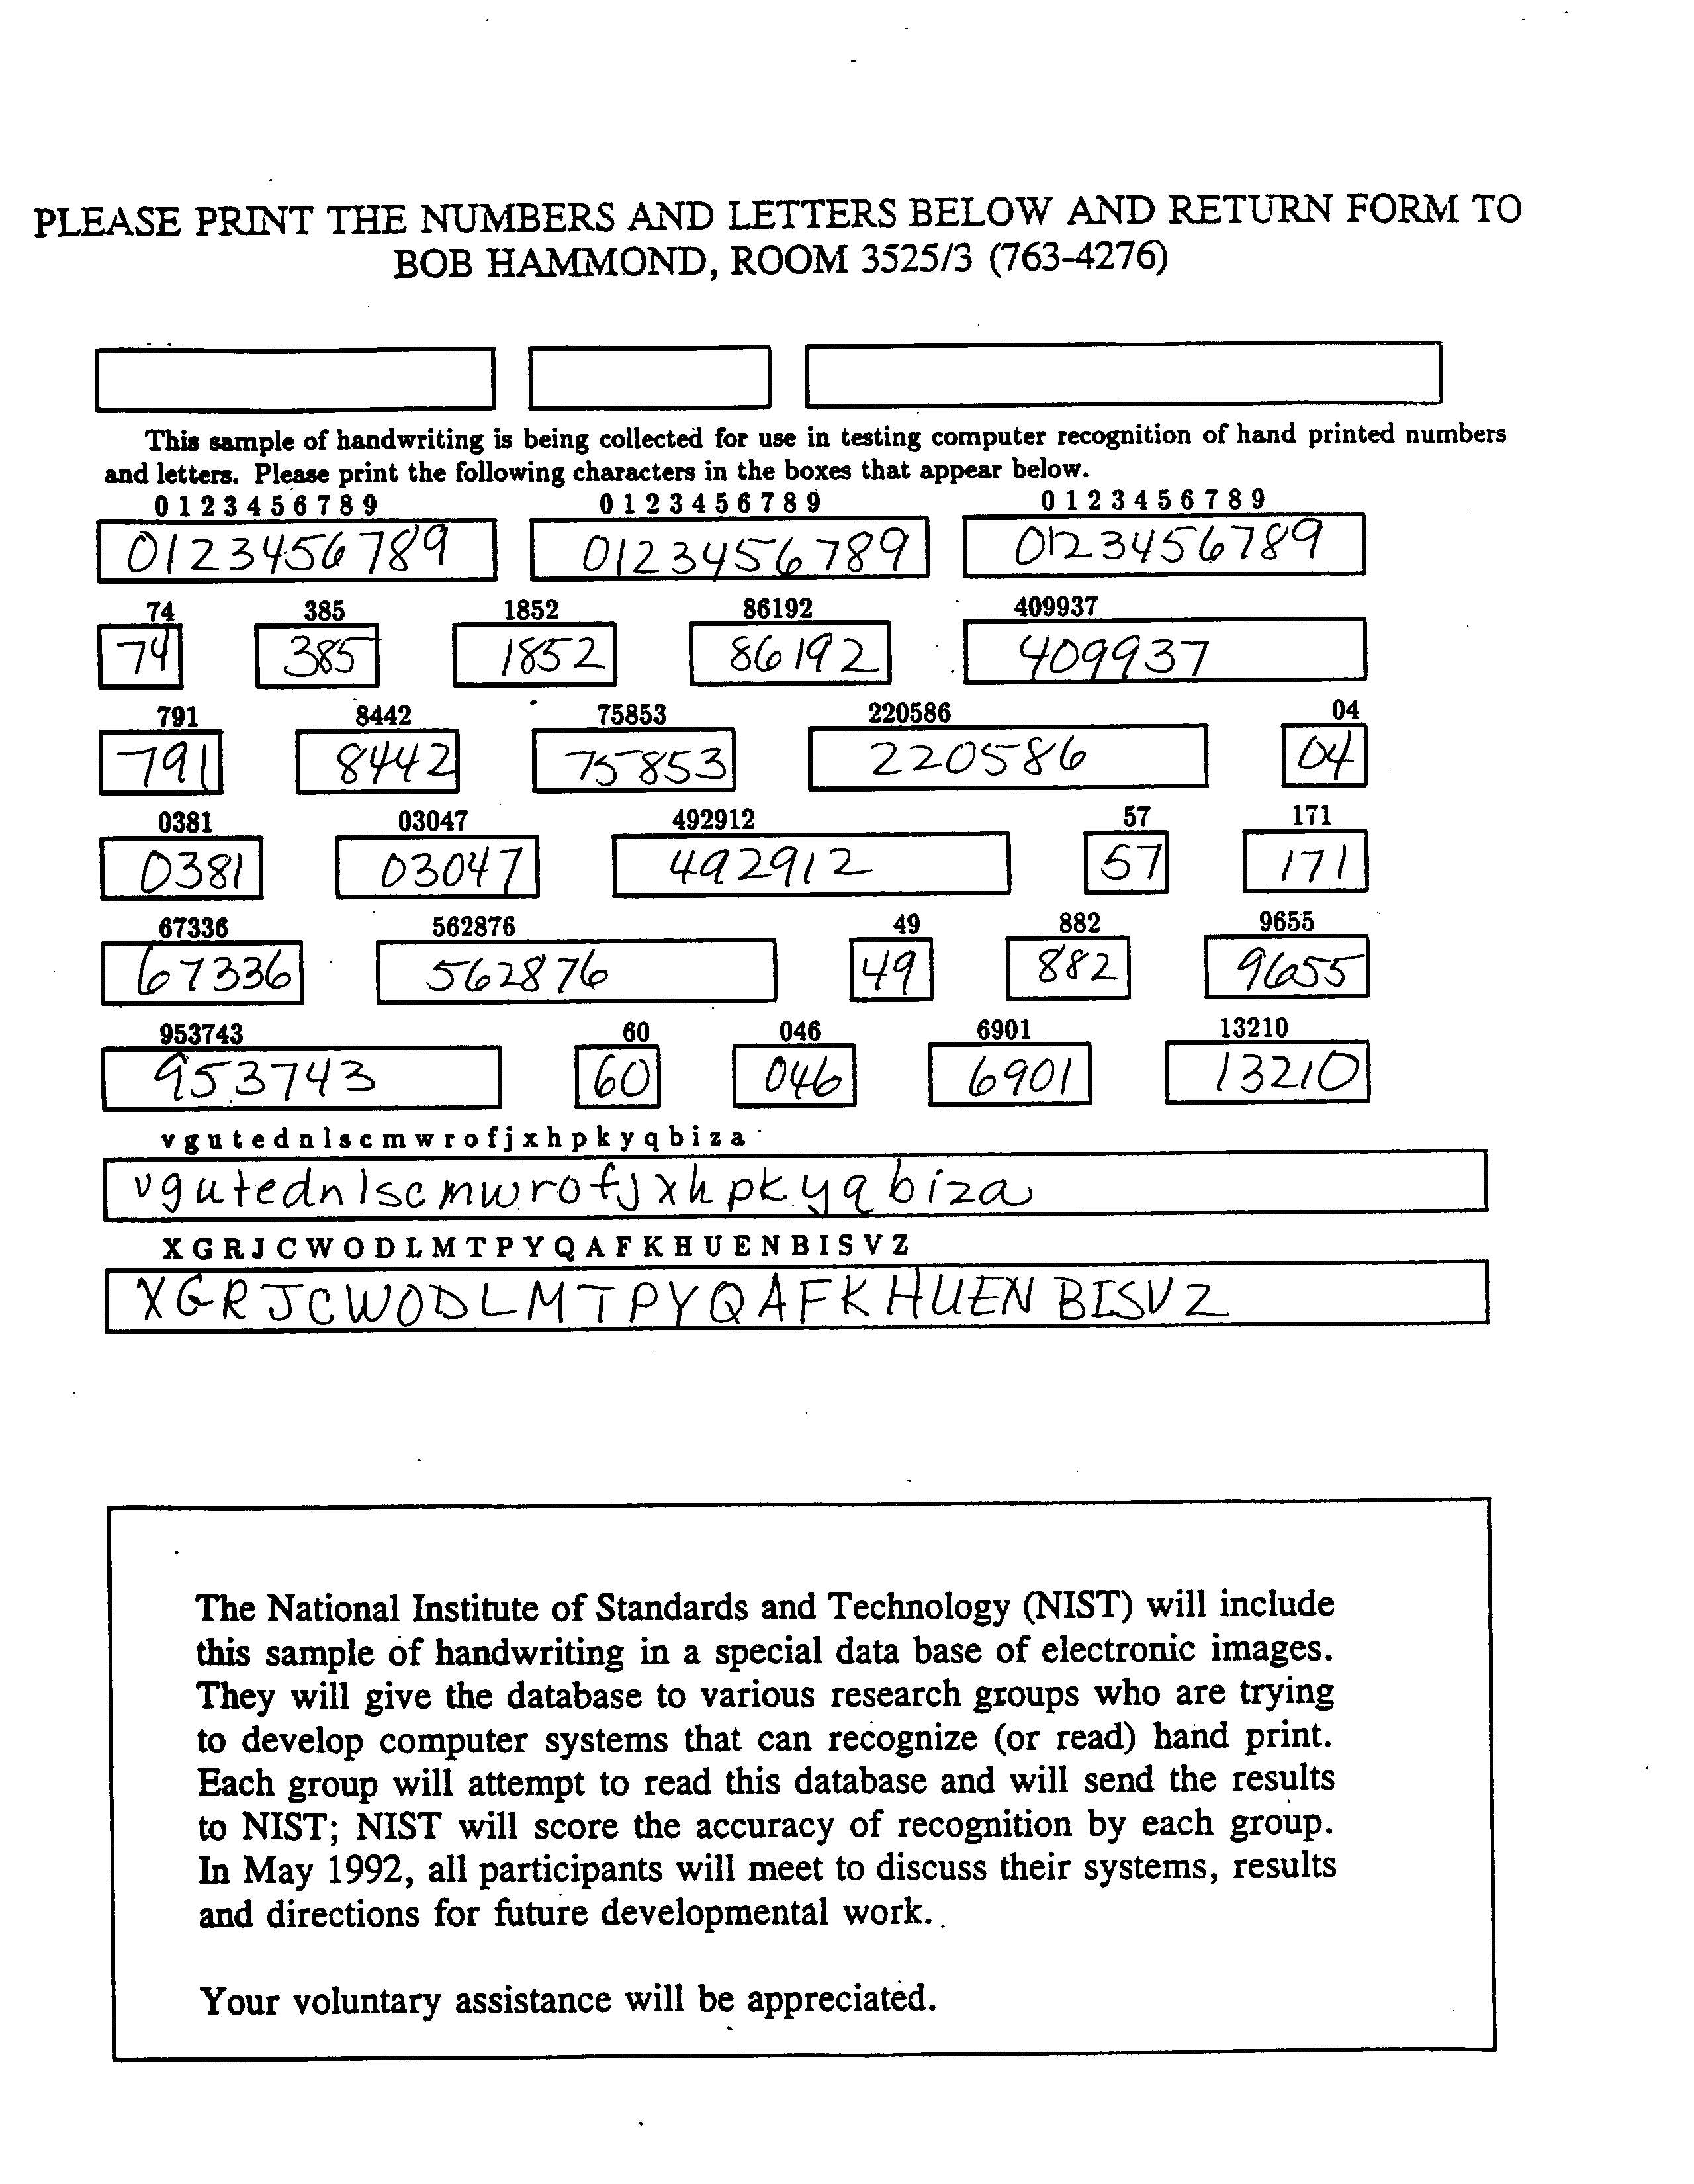 PLEASE PRINT THE NUMBERS AND LETTERS BELOW AND RETURN FORM TO
BOB HAMMOND, ROOM 3525/3 (763-4276)
This sample of handwriting is being collected for use in testing computer recognition of hand printed numbers
and letters. Please print the following characters in the boxes that appear below.
0 1 2 3 4 5 6 7 8 9 0 1 2 3 4 5 6 7 8 9 0 1 2 3 4 5 6 7 8 9
0123456789 0123456789 0123456789
74 385 1852 86192 409937
74 385 1852 86192 409937
791 8442 75853 220586 04
791 8442 75853 220586 04
0381 03047 492912 57 171
0381 03047 492912 57 171
67336 562876 49 882 9655
67336 562876 49 882 9655
953743 60 046 6901 13210
953743 60 046 6901 13210
v g u t e d n l s c m w r o f j x h p k y q b i z a
vgutednlscmwrofjxhpkyqbiza
X G R J C W O D L M T P Y Q A F K H U E N B I S V Z
XGRJCWODLMTPYQAFKHUENBISVZ
The National Institute of Standards and Technology (NIST) will include
this sample of handwriting in a special data base of electronic images.
They will give the database to various research groups who are trying
to develop computer systems that can recognize (or read) hand print.
Each group will attempt to read this database and will send the results
to NIST; NIST will score the accuracy of recognition by each group.
In May 1992, all participants will meet to discuss their systems, results
and directions for future developmental work.
Your voluntary assistance will be appreciated.